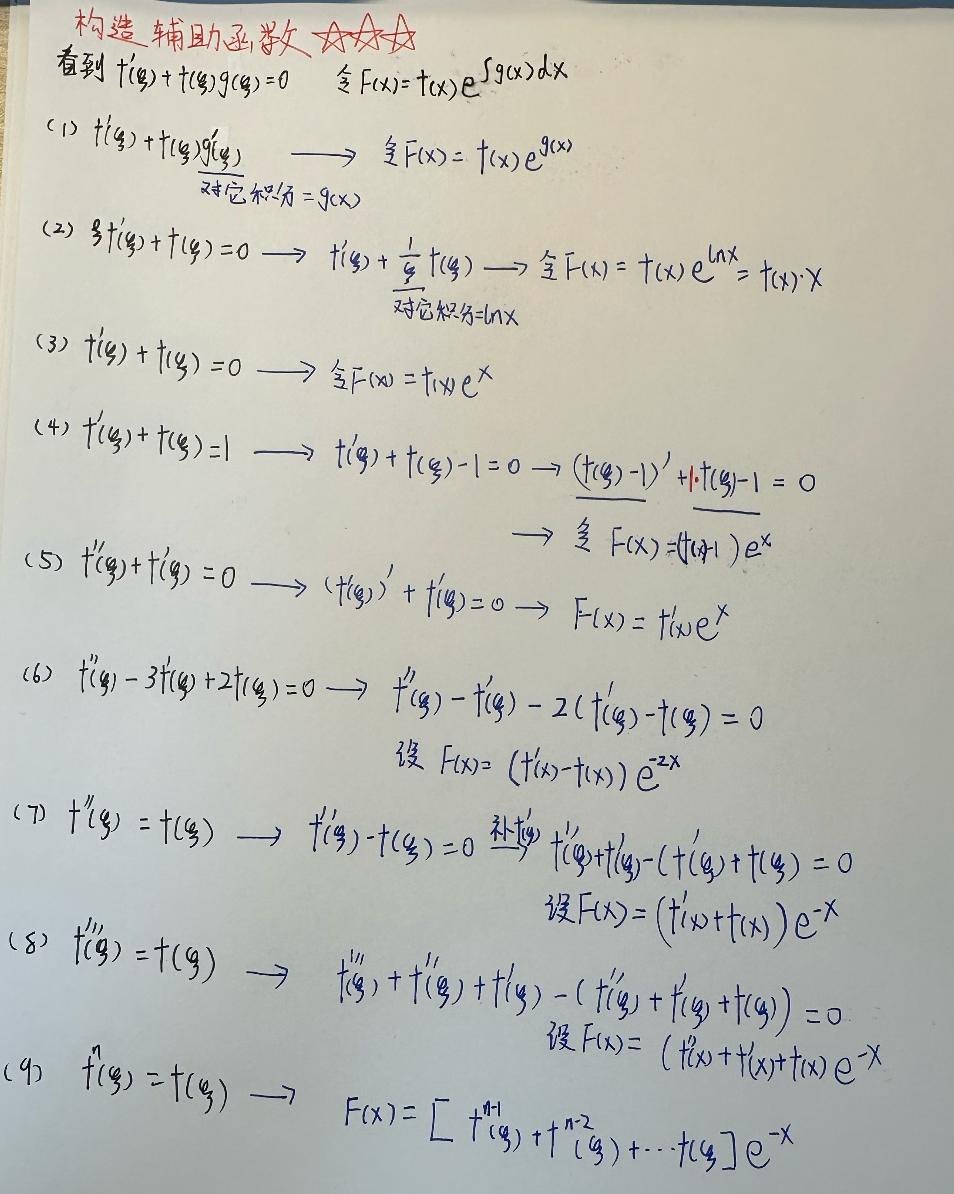 构造辅助函数 ☆☆☆
看到 f'(ξ)+f(ξ)g(ξ)=0 令F(x)=f(x)e^{∫g(x)dx}
(1) f'(ξ)+f(ξ)g'(ξ) → 令F(x)=f(x)e^{g(x)}
对它积分=g(x)
(2) ξf'(ξ)+f(ξ)=0 → f'(ξ)+\frac{1}{ξ}f(ξ) → 令F(x)=f(x)e^{lnx}=f(x)·x
对它积分=lnx
(3) f'(ξ)+f(ξ)=0 → 令F(x)=f(x)e^x
(4) f'(ξ)+f(ξ)=1 → f'(ξ)+f(ξ)-1=0 → (f(ξ)-1)'+1·f(ξ)-1=0
→ 令 F(x)=(f(x)-1)e^x
(5) f''(ξ)+f'(ξ)=0 → (f'(ξ))'+f'(ξ)=0 → F(x)=f'(x)e^x
(6) f''(ξ)-3f'(ξ)+2f(ξ)=0 → f''(ξ)-f'(ξ)-2(f'(ξ)-f(ξ))=0
设 F(x)=(f'(x)-f(x))e^{-2x}
(7) f''(ξ)=f(ξ) → f''(ξ)-f(ξ)=0 补f'(ξ) → f''(ξ)+f'(ξ)-(f'(ξ)+f(ξ)=0
设F(x)=(f'(x)+f(x))e^{-x}
(8) f'''(ξ)=f(ξ) → f'''(ξ)+f''(ξ)+f'(ξ)-(f''(ξ)+f'(ξ)+f(ξ))=0
设F(x)=(f''(x)+f'(x)+f(x)e^{-x}
(9) f^n(ξ)=f(ξ) → F(x)=[f^{n-1}(ξ)+f^{n-2}(ξ)+…f(ξ]e^{-x}